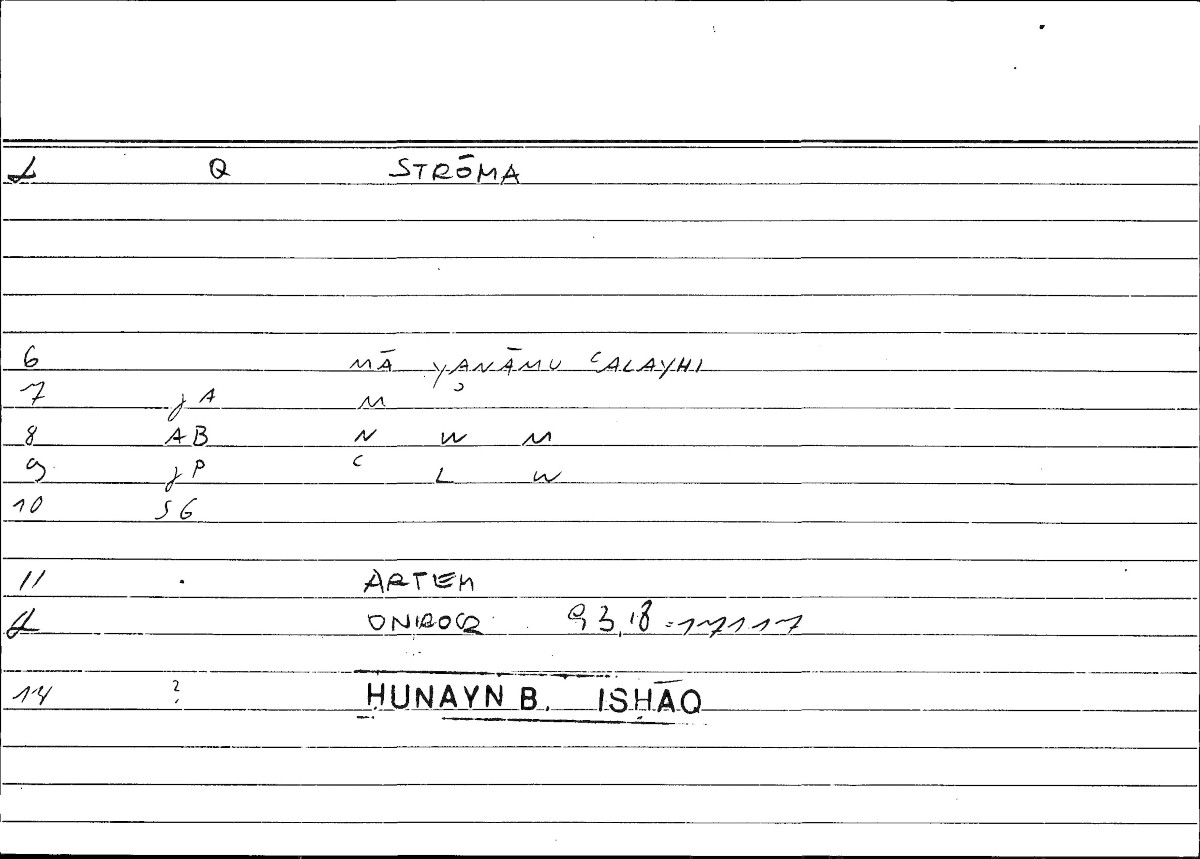 Q STRŌMA
6 MĀ YANĀMU ʿALAYHI
7 jA M
8 AB N W M
9 jP ʿ L W
10 SG
11 . ARTEM
ONIROCR 93,18 = 171,17
14 ? ḤUNAYN B. ISḤĀQ